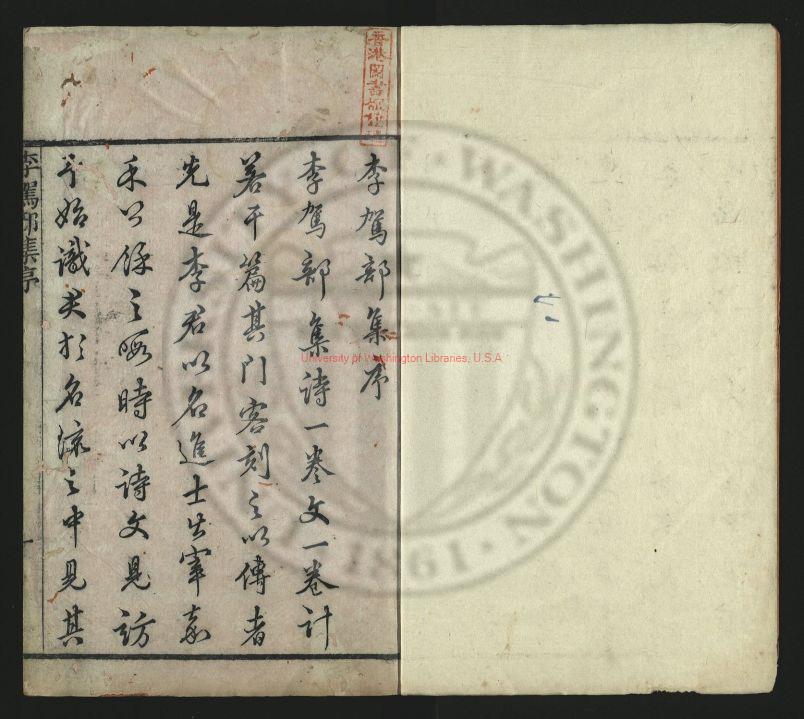 香港圖書
李駕部集序
李駕部集詩一卷文一卷計
若干篇其門客刻之以傳者
先是李君以名進士出宰嘉
禾公餘之暇時以詩文見訪
予始識於名流之中見其
李駕部集序
一
University of Washington Libraries, U.S.A
WASHINGTON
1861